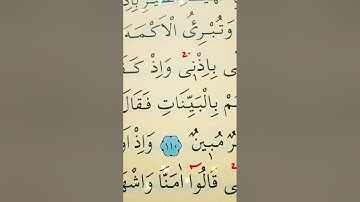 وَتُبْرِئُ الْاَكْمَهَ
بِاِذْنٖى وَاِذْ كَفَ
بِالْبَيِّنَاتِ فَقَالَ
مُبٖينٌ ﴿١١٠﴾ وَاِذْ اَو
قَالُٓوا اٰمَنَّا وَاشْهَ